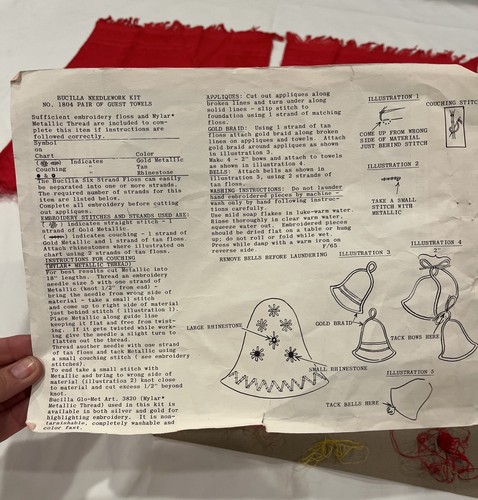 BUCILLA NEEDLEWORK KIT
NO. 1804 PAIR OF GUEST TOWELS
Sufficient embroidery floss and Mylar*
Metallic Thread are included to com-
plete this item if instructions are
followed correctly.
Symbol
on
Chart Color
Indicates Gold Metallic
Couching Tan
Rhinestone
The Bucilla Six Strand Floss can easily
be separated into one or more strands.
The required number of strands for this
item are listed below.
Complete all embroidery before cutting
out appliques.
EMBROIDERY STITCHES AND STRANDS USED ARE:
( ) indicates straight stitch - 1
Strand of Gold Metallic.
( ) indicates couching - 1 strand of
Gold Metallic and 1 strand of tan floss.
Attach rhinestones where illustrated on
chart using 2 strands of tan floss.
INSTRUCTIONS FOR COUCHING
(MYLAR* METALLIC THREAD)
For best results cut Metallic into
18" lengths. Thread an embroidery
needle size 5 with one strand of
Metallic (knot 1/2" from end) -
bring the needle from wrong side of
material - take a small stitch
and come up to right side of material
just behind stitch (illustration 1).
Place Metallic along guide line
keeping it flat and free from twist-
ing. If it gets twisted while work-
ing give the needle a slight turn to
flatten out the thread.
Thread another needle with one strand
of tan floss and tack Metallic using
a small couching stitch (see embroidery
stitches).
To end take a small stitch with
Metallic and bring to wrong side of
material (illustration 2) knot close
to material and cut excess 1/2" beyond
knot.
Bucilla Glo-Met Art. 3820 (Mylar*
Metallic Thread) used in this kit is
available in both silver and gold for
highlighting embroidery. It is non-
tarnishable, completely washable and
color fast.
APPLIQUES: Cut out appliques along
broken lines and turn under along
solid lines - slip stitch to
foundation using 1 strand of matching
floss.
GOLD BRAID: Using 1 strand of tan
floss attach gold braid along broken
lines on appliques and towels. Attach
gold braid around appliques as shown
in illustration 3.
Make 4 - 2" bows and attach to towels
as shown in illustration 4.
BELLS: Attach bells as shown in
illustration 5, using 2 strands of
tan floss.
WASHING INSTRUCTIONS: Do not launder
hand embroidered pieces by machine -
wash only by hand following instruc-
tions carefully.
Use mild soap flakes in luke-warm water.
Rinse thoroughly in clear warm water,
squeeze water out. Embroidered pieces
should be dried flat on a table or hung
up; do not roll or fold while wet.
Press while damp with a warm iron on
reverse side. F/65
REMOVE BELLS BEFORE LAUNDERING
LARGE RHINESTONE
SMALL RHINESTONE
ILLUSTRATION 1
COME UP FROM WRONG
SIDE OF MATERIAL
JUST BEHIND STITCH
COUCHING STITC
ILLUSTRATION 2
TAKE A SMALL
STITCH WITH
METALLIC
ILLUSTRATION 3
GOLD BRAID
ILLUSTRATION 4
TACK BOWS HERE
ILLUSTRATION 5
TACK BELLS HERE